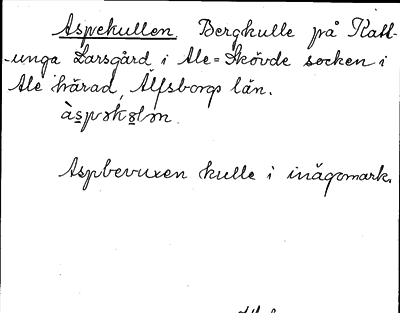 Aspekullen. Bergkulle på Katt-
-unga Larsgård i Ale=Skövde socken i
Ale härad, Älfsborgs län.
àspəkɵlən.
Aspbevuxen kulle i inägomark.